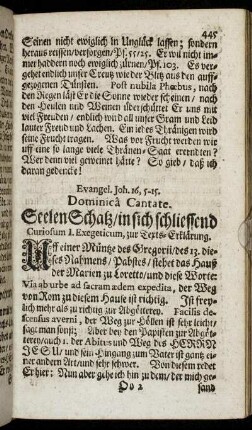 445
Seinen nicht ewiglich in Unglück lassen; sondern
heraus reissen/versorgen/Ps. 55/25. Er wil nicht im-
mer haddern noch ewiglich zürnen/Ps. 103. Es ver-
gehet endlich unser Creutz wie der Blitz aus den auff-
gezogenen Dünsten. Post nubila Phœbus, nach
den Regen läst Er die Sonne wieder scheinen/ nach
den Heulen und Weinen überschüttet Er uns mit
viel Freuden/ endlich wird all unser Gram und Leid
lauter Freud und Lachen. Ein iedes Thränigen wird
seine Frucht tragen. Was vor Frucht werden wir
uff eine so lange viele Thränen-Saat erendten?
Wer denn viel geweinet hätte? So gieb/ daß ich
daran gedencke!
Evangel. Joh. 16, 5-15.
Dominicâ Cantate.
Seelen Schatz/in sich schliessend
Curiosum I. Exegeticum, zur Texts-Erklärung.
Uff einer Müntze des Gregorii/des 13. die-
ses Nahmens/ Pabstes/stehet das Hauß
der Marien zu Loretto/und diese Worte:
Via ab urbe ad sacram ædem expedita, der Weg
von Rom zu diesem Hause ist richtig. Ist frey-
lich mehr als zu richtig zur Abgötterey. Facilis de-
scensus averni, der Weg zur Höllen ist sehr leicht/
sagt man sonst; Aber bey den Papisten zur Abgöt-
terey/auch 1. der Abitus und Weg des HERRN
JESU/ und sein Hingang zum Vater ist gantz ei-
ner andern Art/und sehr schwer. Von diesem redet
Er hier; Nun aber gehe ich hin zu dem/ der mich ge-
sand